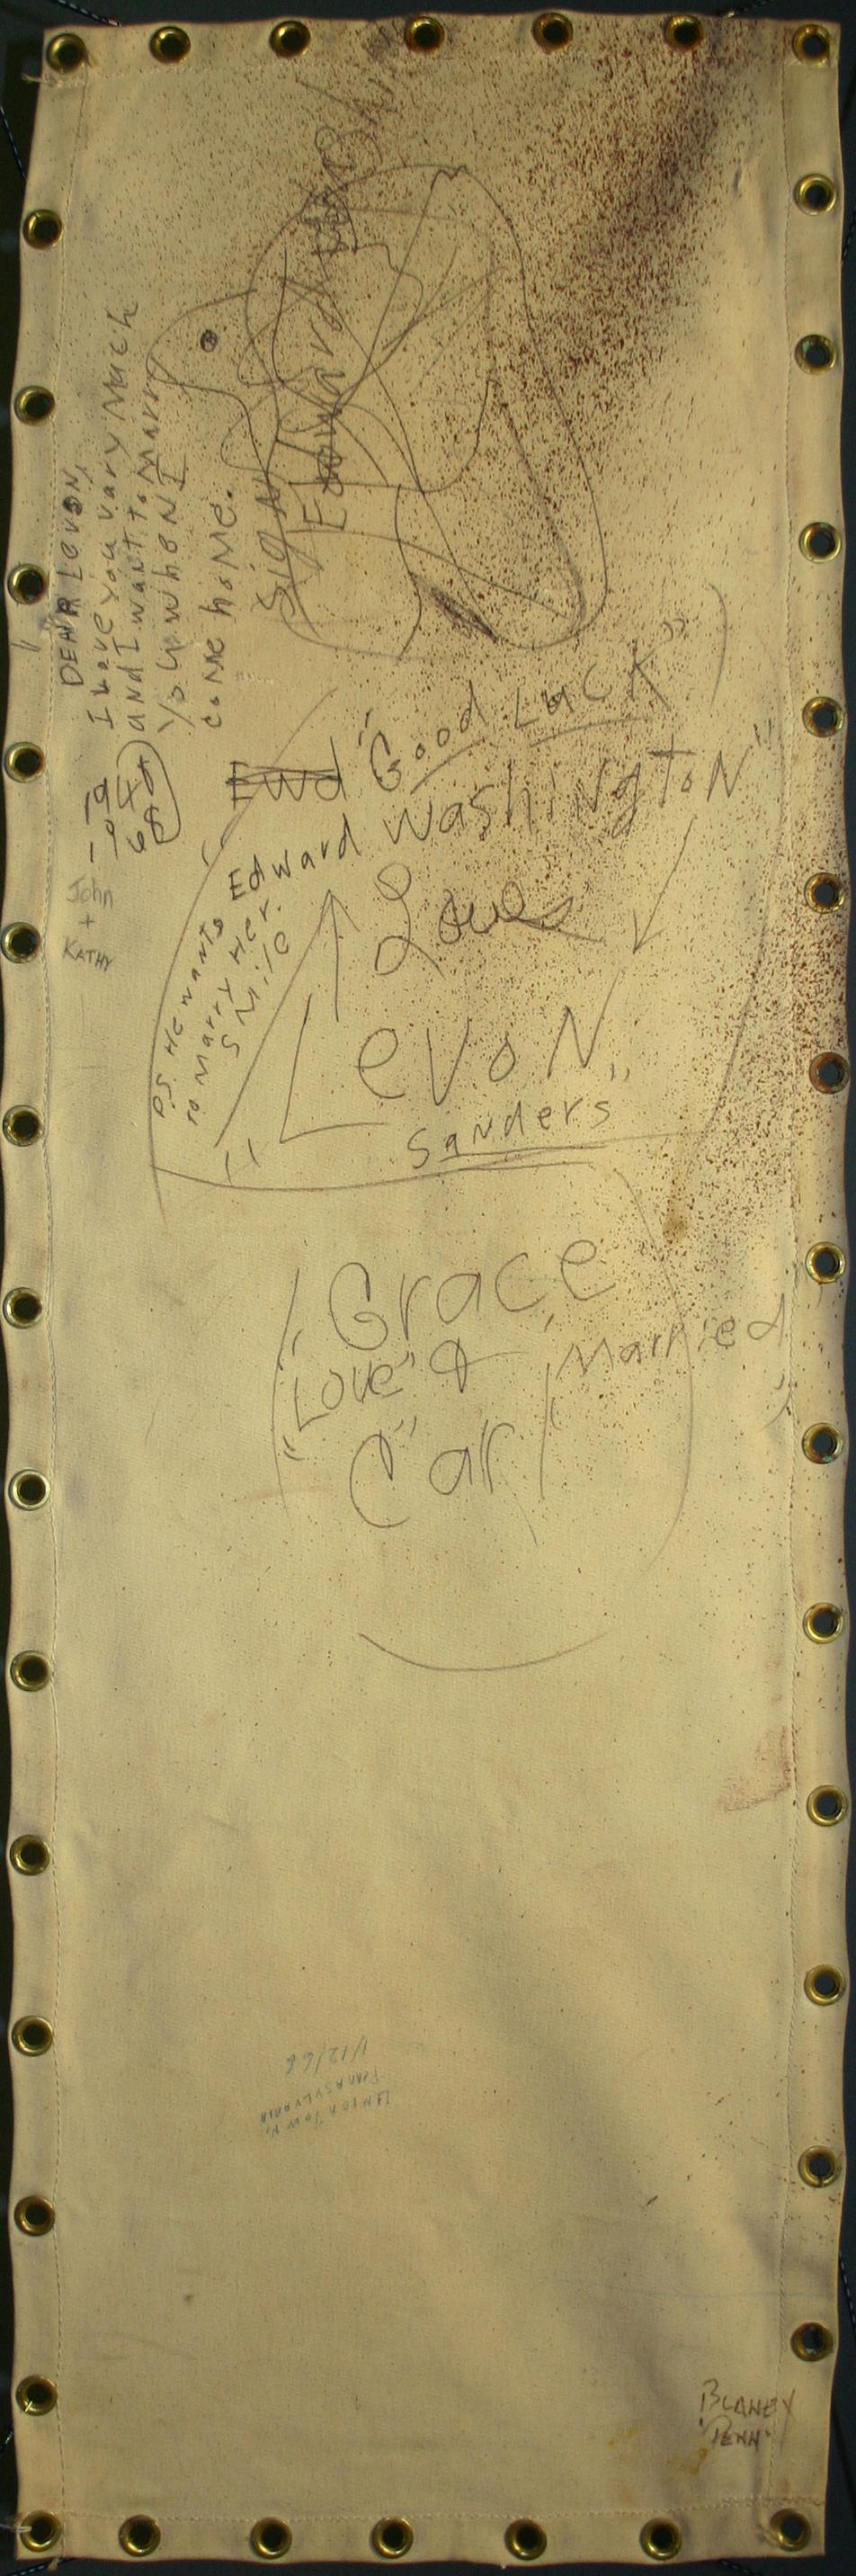 DEAR LEVON,
I Love you vary Much
and I want to Marry
you when I
come home.
Sign
Edward
19
48
1968
John
+
KATHY
"Good Luck"
Ewd
Edward Washington"
Loves
Levon"
Sanders
PS. He wants
to Marry Her.
SMile
Grace
"Love" &
Married
Carl
UNIONTOWN,
PENNASYLVANIA
1/12/68
BLANEY
"PENN"